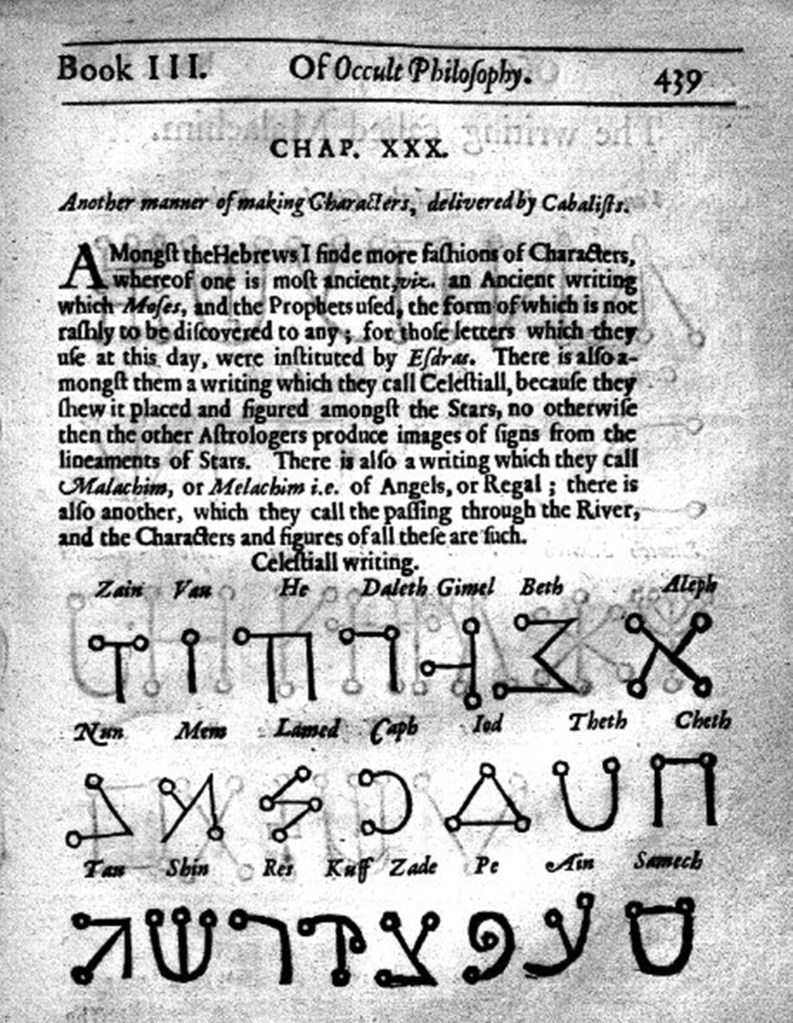 Book III. Of Occult Philoſophy. 439
CHAP. XXX.
Another manner of making Characters, delivered by Cabaliſts.
AMongſt the Hebrews I finde more faſhions of Characters,
whereof one is moſt ancient, viz. an Ancient writing
which Moſes, and the Prophets uſed, the form of which is not
raſhly to be diſcovered to any; for thoſe letters which they
uſe at this day, were inſtituted by Eſdras. There is alſo a-
mongſt them a writing which they call Celeſtiall, becauſe they
ſhew it placed and figured amongſt the Stars, no otherwiſe
then the other Aſtrologers produce images of ſigns from the
lineaments of Stars. There is alſo a writing which they call
Malachim, or Melachim i.e. of Angels, or Regal; there is
alſo another, which they call the paſſing through the River,
and the Characters and figures of all theſe are ſuch.
Celeſtiall writing.
Zain Vau He Daleth Gimel Beth Aleph
Nun Mem Lamed Caph Iod Theth Cheth
Tau Shin Res Kuff Zade Pe Ain Samech